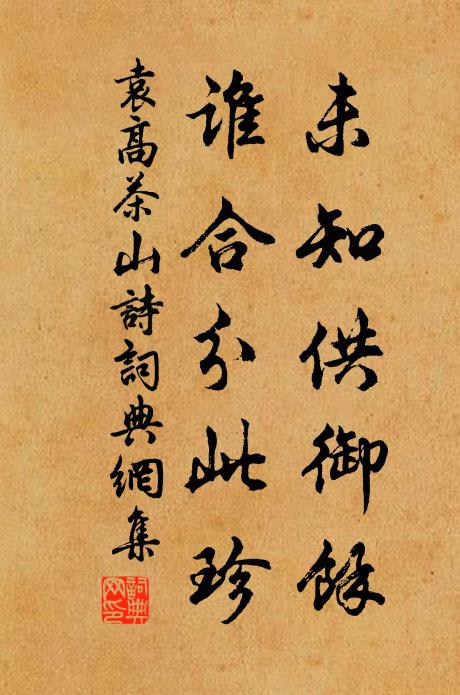 未知供御餘
誰合分此珍
袁高茶山詩詞典網集
詞典网印